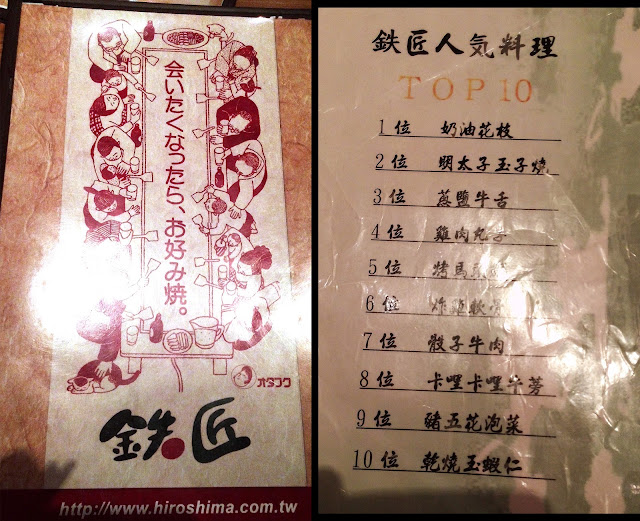 会いたくなったら、お好み焼。
オタフク
鉄匠
http://www.hiroshima.com.tw
鉄匠人気料理
TOP 10
1位 奶油花枝
2位 明太子玉子燒
3位 蔥鹽牛舌
4位 雞肉丸子
5位 烤馬
6位 炸雞軟骨
7位 骰子牛肉
8位 卡嘿卡嘿牛蒡
9位 豬五花泡菜
10位 乾燒玉蝦仁